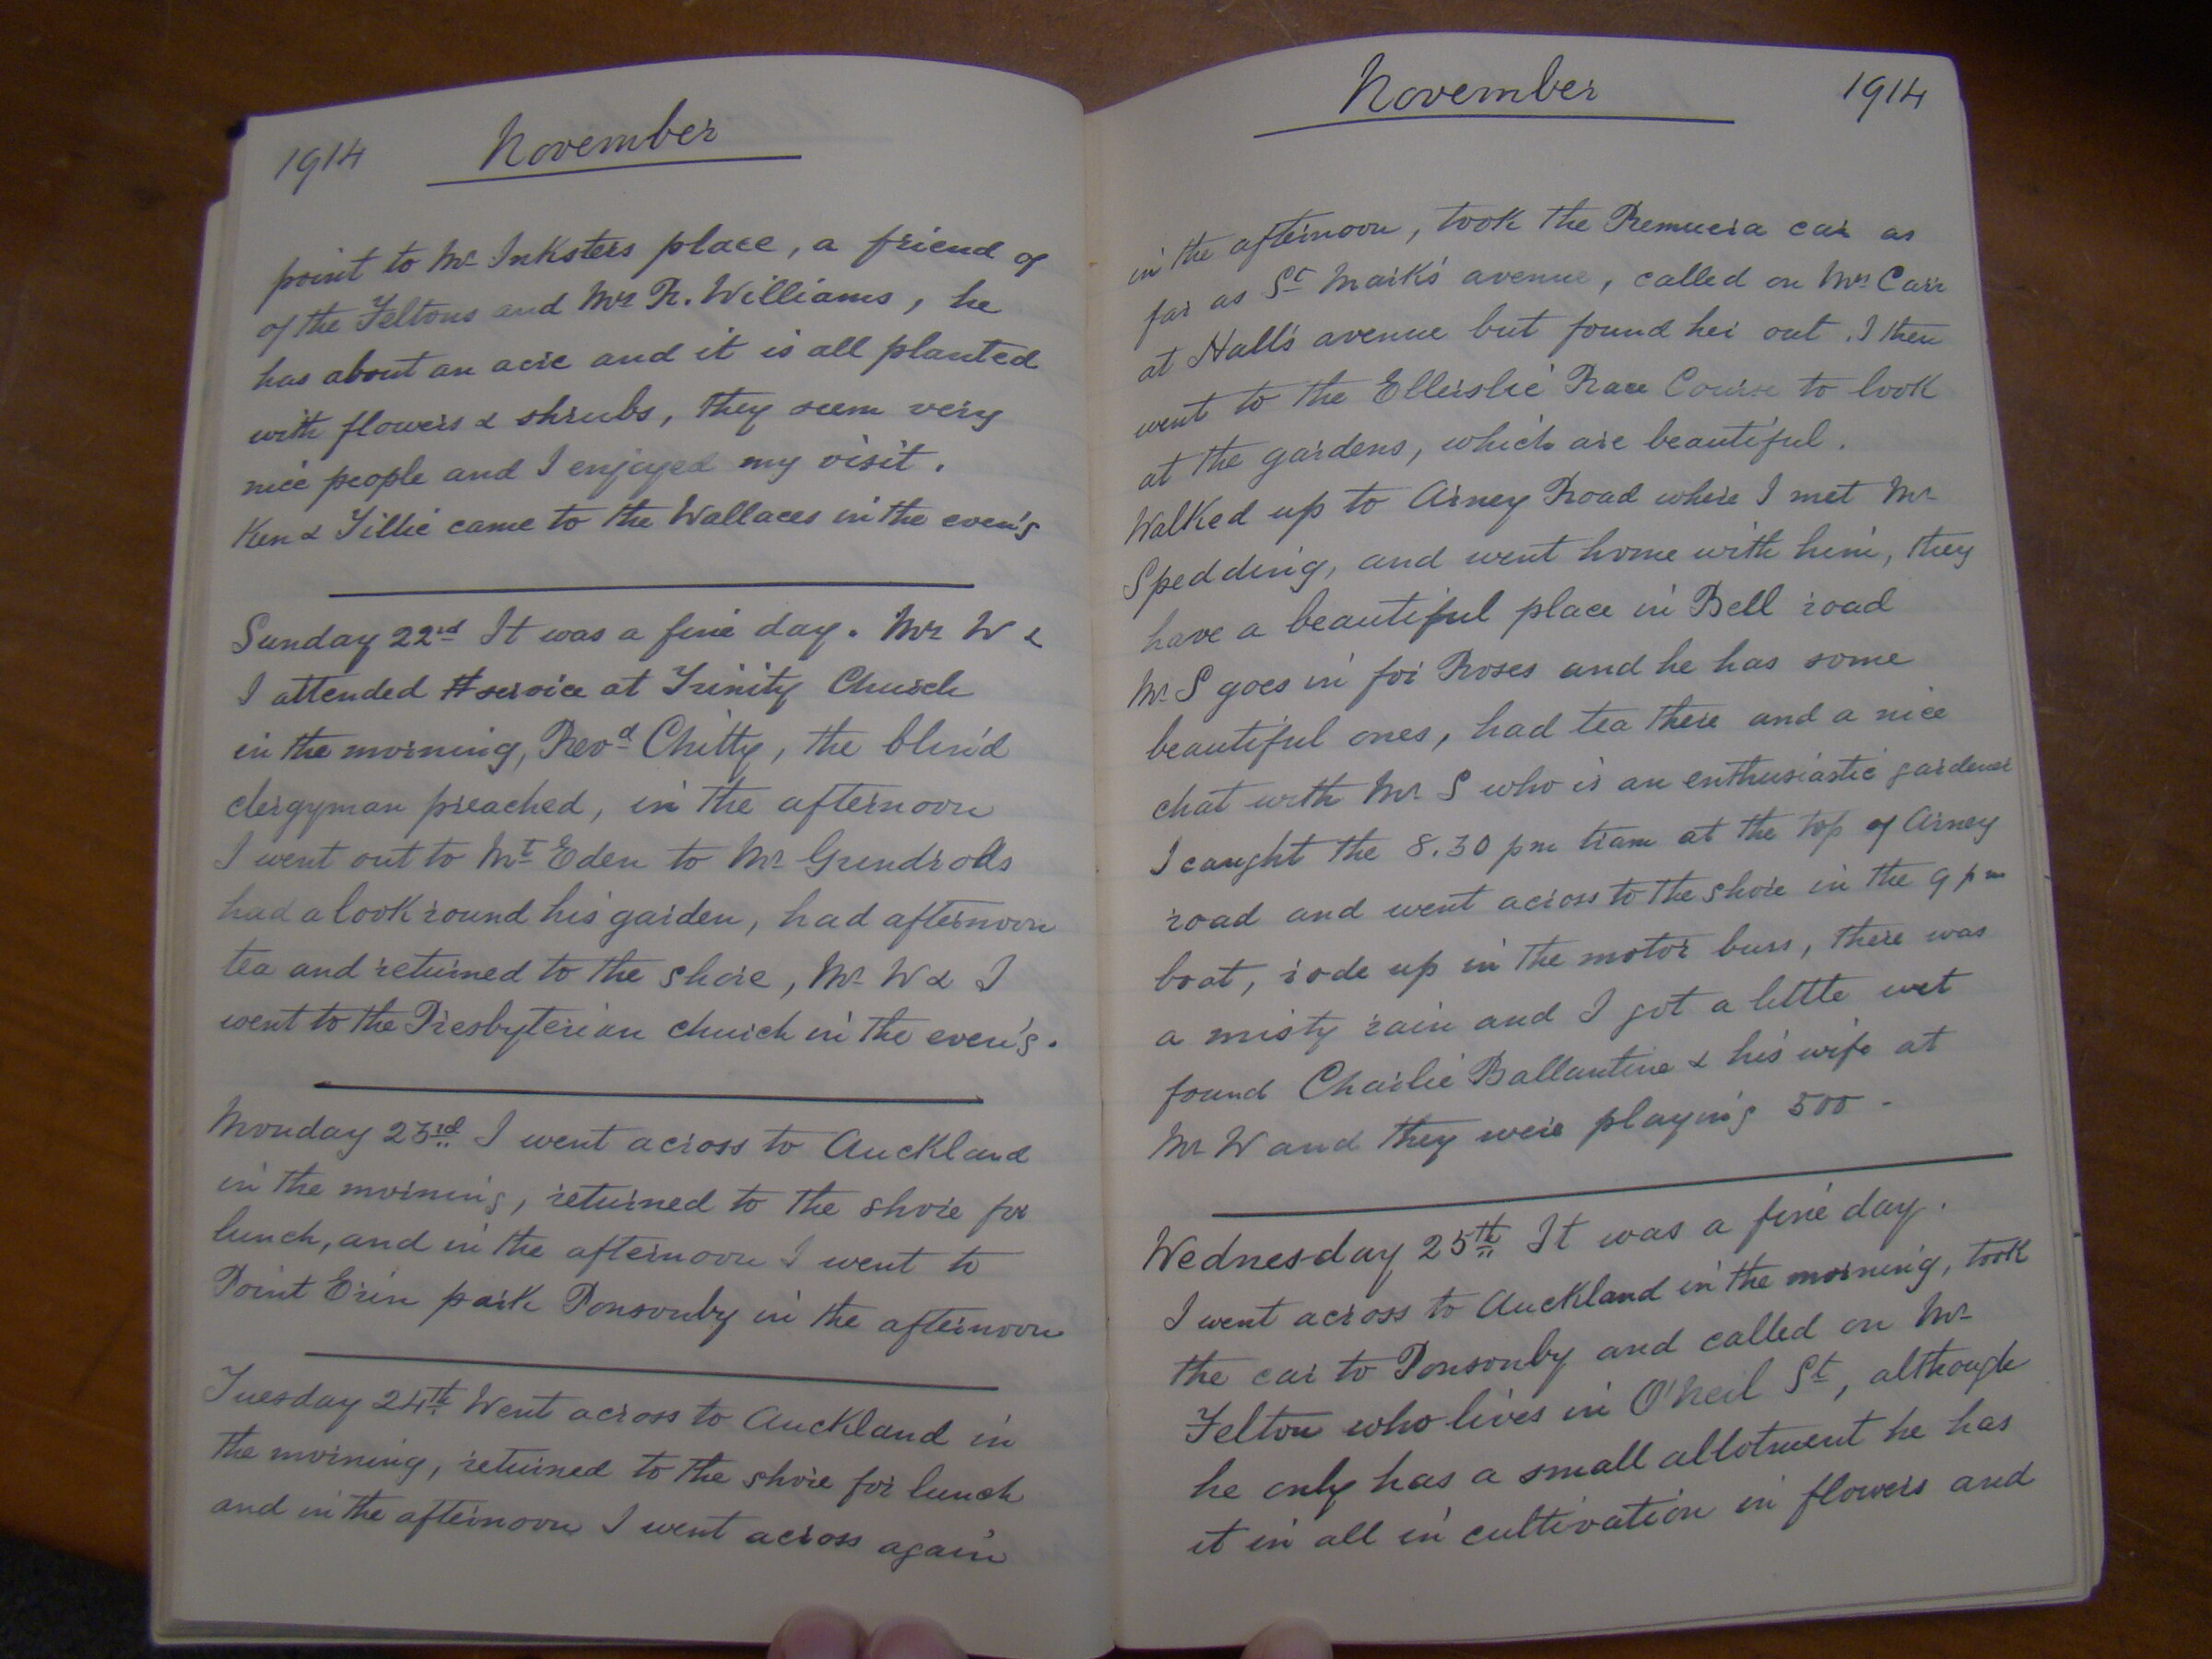 1914 November
point to Mr Inksters place, a friend of
of the Feltons and Mrs R. Williams, he
has about an acre and it is all planted
with flowers & shrubs, they seem very
nice people and I enjoyed my visit.
Ken & Tillie came to the Wallaces in the even'g
Sunday 22nd It was a fine day. Mr W &
I attended service at Trinity Church
in the morning, Revd Chitty, the blind
clergyman preached, in the afternoon
I went out to Mt Eden to Mr Grindrods
had a look round his garden, had afternoon
tea and returned to the shore, Mr W & I
went to the Presbyterian church in the even'g.
Monday 23rd I went across to Auckland
in the morning, returned to the shore for
lunch, and in the afternoon I went to
Point Erin park Ponsonby in the afternoon
Tuesday 24th Went across to Auckland in
the morning, returned to the shore for lunch
and in the afternoon I went across again
November 1914
in the afternoon, took the Remuera car as
far as St Mark's avenue, called on Mrs Carr
at Hall's avenue but found her out. I then
went to the Ellerslie Race Course to look
at the gardens, which are beautiful.
Walked up to Arney Road where I met Mr
Spedding, and went home with him, they
have a beautiful place in Bell road
Mr S goes in for Roses and he has some
beautiful ones, had tea there and a nice
chat with Mr S who is an enthusiastic gardener
I caught the 8.30 pm tram at the top of Arney
road and went across to the shore in the 9 pm
boat, rode up in the motor buss, there was
a misty rain and I got a little wet
found Charlie Ballantine & his wife at
Mr W and they were playing 500 -
Wednesday 25th It was a fine day.
I went across to Auckland in the morning, took
the car to Ponsonby and called on Mr
Felton who lives in O'Neil St, although
he only has a small allotment he has
it in all in cultivation in flowers and